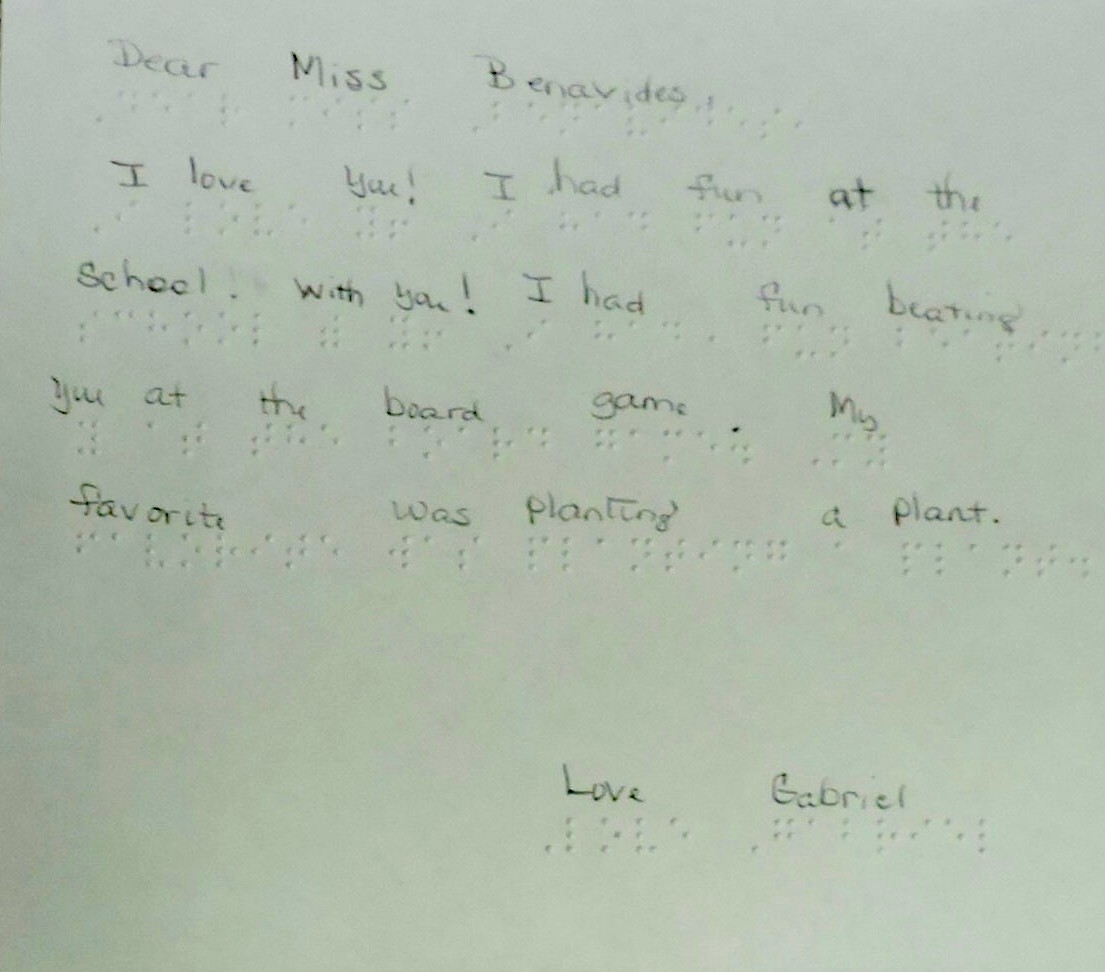 Dear Miss Benavides,
I love you! I had fun at the
school! with you! I had fun beating
you at the board game. My
favorite was planting a plant.
Love Gabriel